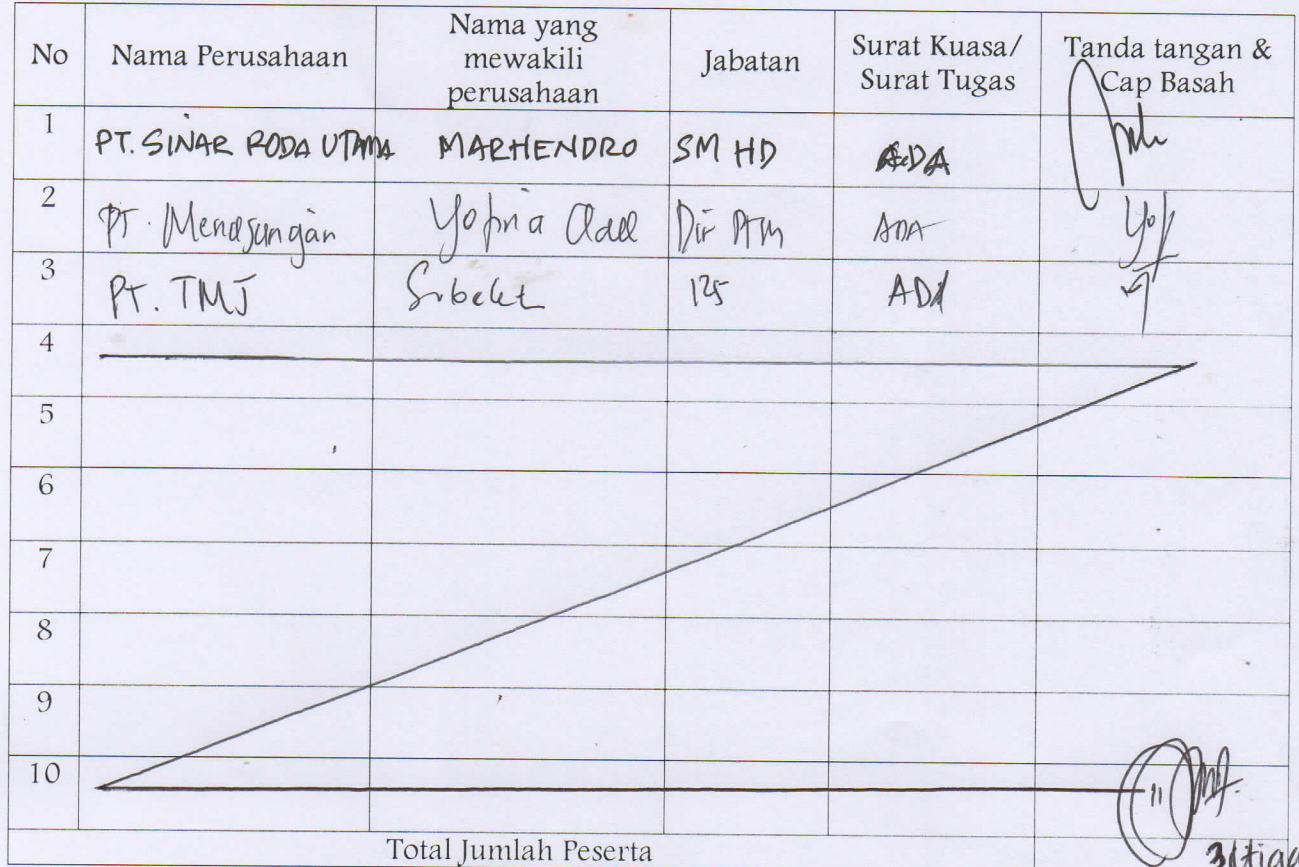 No
Nama Perusahaan
Nama yang
mewakili
perusahaan
Jabatan
Surat Kuasa/
Surat Tugas
Tanda tangan &
Cap Basah
1
PT. SINAR RODA UTAMA MARHENDRO SM HD ADA
2
PT. Yofria Dir ADA
3
PT. TMJ ADA
4
5
6
7
8
9
10
Total Jumlah Peserta